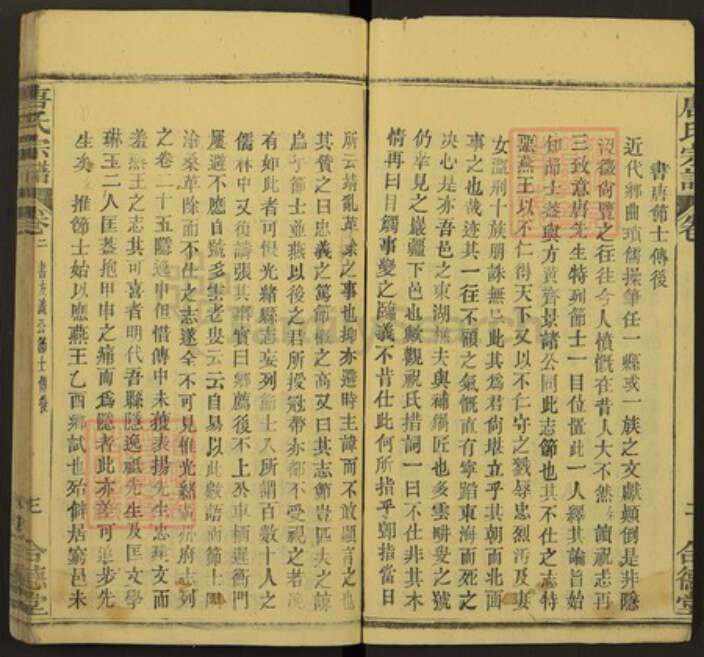 書唐節士傳後
近代鄉曲瑣儒操筆任一縣或一族之文獻顛倒是非隱
沒微尚覽之往往令人憤慨在昔人大不然讀祝志再
三致意唐先生特列節士一目位置此一人釋其論旨始
知節士蓋與方黃齊景諸公同此志節也其不仕之志特
燕王以不仁得天下又以不仁守之戮辱忠烈汚及妻
女濫刑十族朋誅無此其為君尚堪立乎其朝而北面
事之也哉迹其一往不顧之氣慨直有寧蹈東海而死之
決心是亦吾邑之東湖樵夫與補鍋匠也多雲畊叟之號
仍幸見之巖疆下邑也歟觀祝氏措詞一曰不仕非其本
情再曰目觸事變之臨義不昔仕此何所指乎卽指當日
所云靖亂革除之事也抑亦避時主諱而不敢顯言之也
其贊之曰忠義之篤節概之高又曰其志節豈匹夫之諒
乎節士並燕以後之君所授冠帶亦都不受視之者
有如此者可恨光緒縣志妄列節士入所謂百數十人之
儒林中又後譸張其事實曰鄉薦後不上公車栖遲衡門
屢避不應自號多雲老叟云云自易以此數語而節士
滄桑革除而不仕之志遂全不可見惟光緒府志列
之卷二十五隱逸中但惜傳中未獲表揚先生忠文而
羞燕王之志其可喜者明代吾縣隱逸祗先生及匡文學
琳玉二人匡蓋抱甲申之痛而為隱者此亦差可追步先
生矣
推節士始以應燕王乙酉鄉試也殆僻居窮邑未
唐氏宗譜
卷二
書友義公節士傳後
合德堂
唐氏宗譜
卷
合德堂